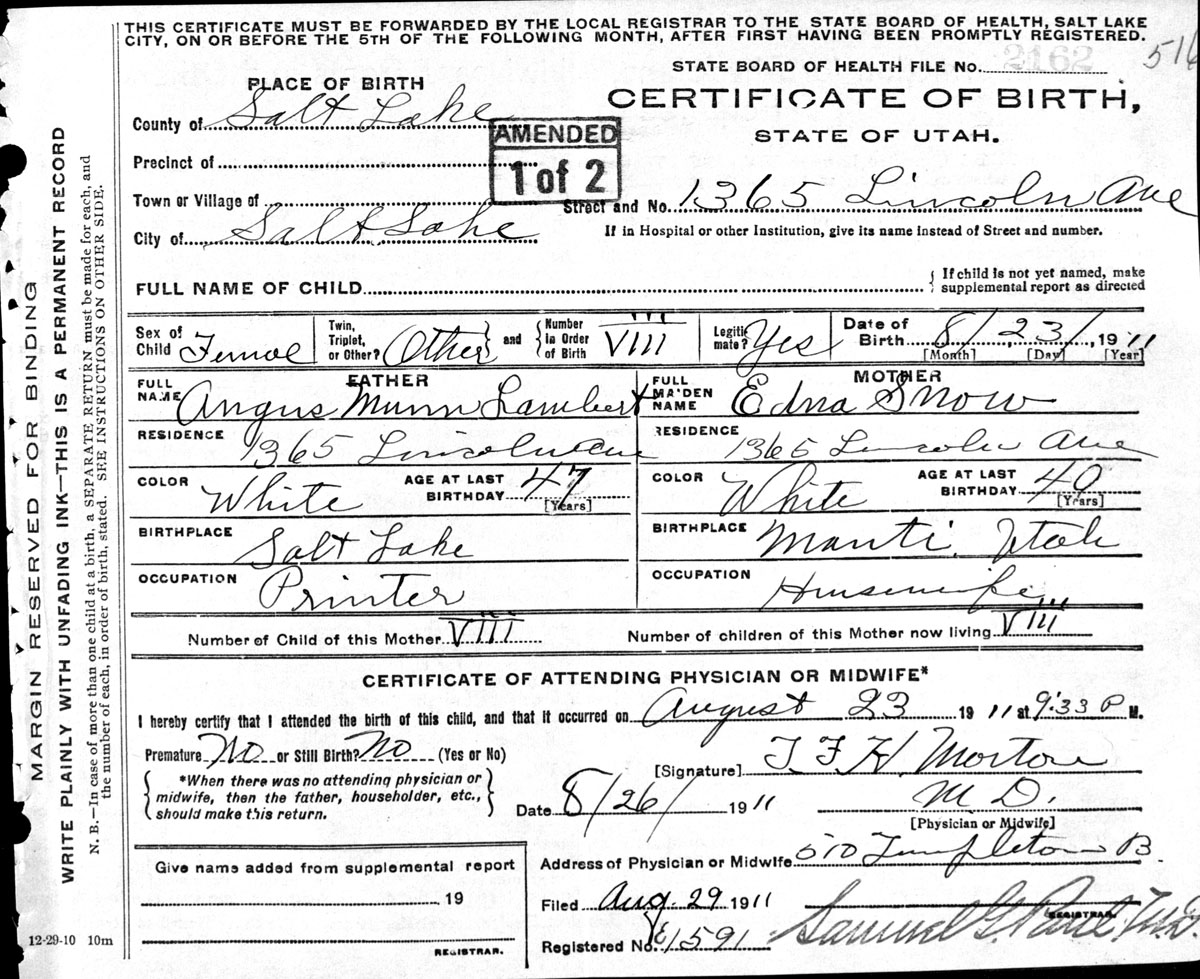 THIS CERTIFICATE MUST BE FORWARDED BY THE LOCAL REGISTRAR TO THE STATE BOARD OF HEALTH, SALT LAKE
CITY, ON OR BEFORE THE 5TH OF THE FOLLOWING MONTH, AFTER FIRST HAVING BEEN PROMPTLY REGISTERED.
516
STATE BOARD OF HEALTH FILE No. 2162
PLACE OF BIRTH
CERTIFICATE OF BIRTH,
STATE OF UTAH.
County of Salt Lake
AMENDED
1 of 2
Precinct of
Town or Village of
Street and No. 1365 Lincoln Ave
City of Salt Lake
If in Hospital or other Institution, give its name instead of Street and number.
FULL NAME OF CHILD
If child is not yet named, make
supplemental report as directed
Sex of Child Femal
Twin, Triplet, or Other? Other and Number In Order of Birth VIII
Legitimate? Yes
Date of Birth 8/23/, 1911
[Month] [Day] [Year]
FATHER
FULL NAME Angus Munn Lambert
MOTHER
FULL MAIDEN NAME Edna Snow
RESIDENCE 1365 Lincoln ave
RESIDENCE 1365 Lincoln Ave
COLOR White AGE AT LAST BIRTHDAY 47 [Years]
COLOR White AGE AT LAST BIRTHDAY 40 [Years]
BIRTHPLACE Salt Lake
BIRTHPLACE Manti, Utah
OCCUPATION Printer
OCCUPATION Housewife
Number of Child of this Mother VIII
Number of children of this Mother now living VIII
CERTIFICATE OF ATTENDING PHYSICIAN OR MIDWIFE*
I hereby certify that I attended the birth of this child, and that it occurred on August 23 1911 at 9:33 P M.
Premature No or Still Birth? No (Yes or No)
*When there was no attending physician or
midwife, then the father, householder, etc.,
should make this return.
[Signature] T F H. Morton
Date 8/26/ 1911
M D.
[Physician or Midwife]
Give name added from supplemental report
19
REGISTRAR.
Address of Physician or Midwife 510 Templeton B.
Filed Aug. 29 1911
Registered No. 1591
Samuel G. M.D.
REGISTRAR.
12-29-10 10m
MARGIN RESERVED FOR BINDING
WRITE PLAINLY WITH UNFADING INK—THIS IS A PERMANENT RECORD
N. B.—In case of more than one child at a birth, a SEPARATE RETURN must be made for each, and
the number of each, in order of birth, stated. SEE INSTRUCTIONS ON OTHER SIDE.